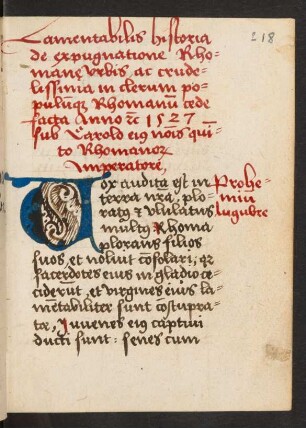 218
Lamentabilis historia
de expugnatione Rho-
manę Urbis, ac crude-
lissima in clerum po-
pulumq̄ꝫ Rhomanū cede
facta Anno ⁊c̄ 1527
sub Carolo eiꝰ nōis qui-
to Rhomanoꝝ
Imperatore,
Vox audita est in
terra nr̄a, plo-
ratꝰ ⁊ ululatus
multꝰ, Rhoma
plorans filios
suos, et noluit cōsolari, qꝛ
sacerdotes eius in gladio ce-
ciderūt, et virgines eius la-
mētabiliter sunt cōstupra-
tæ, Juvenes eiꝰ captivi
ducti sunt: senes cum
Prohe-
miū
lugubre